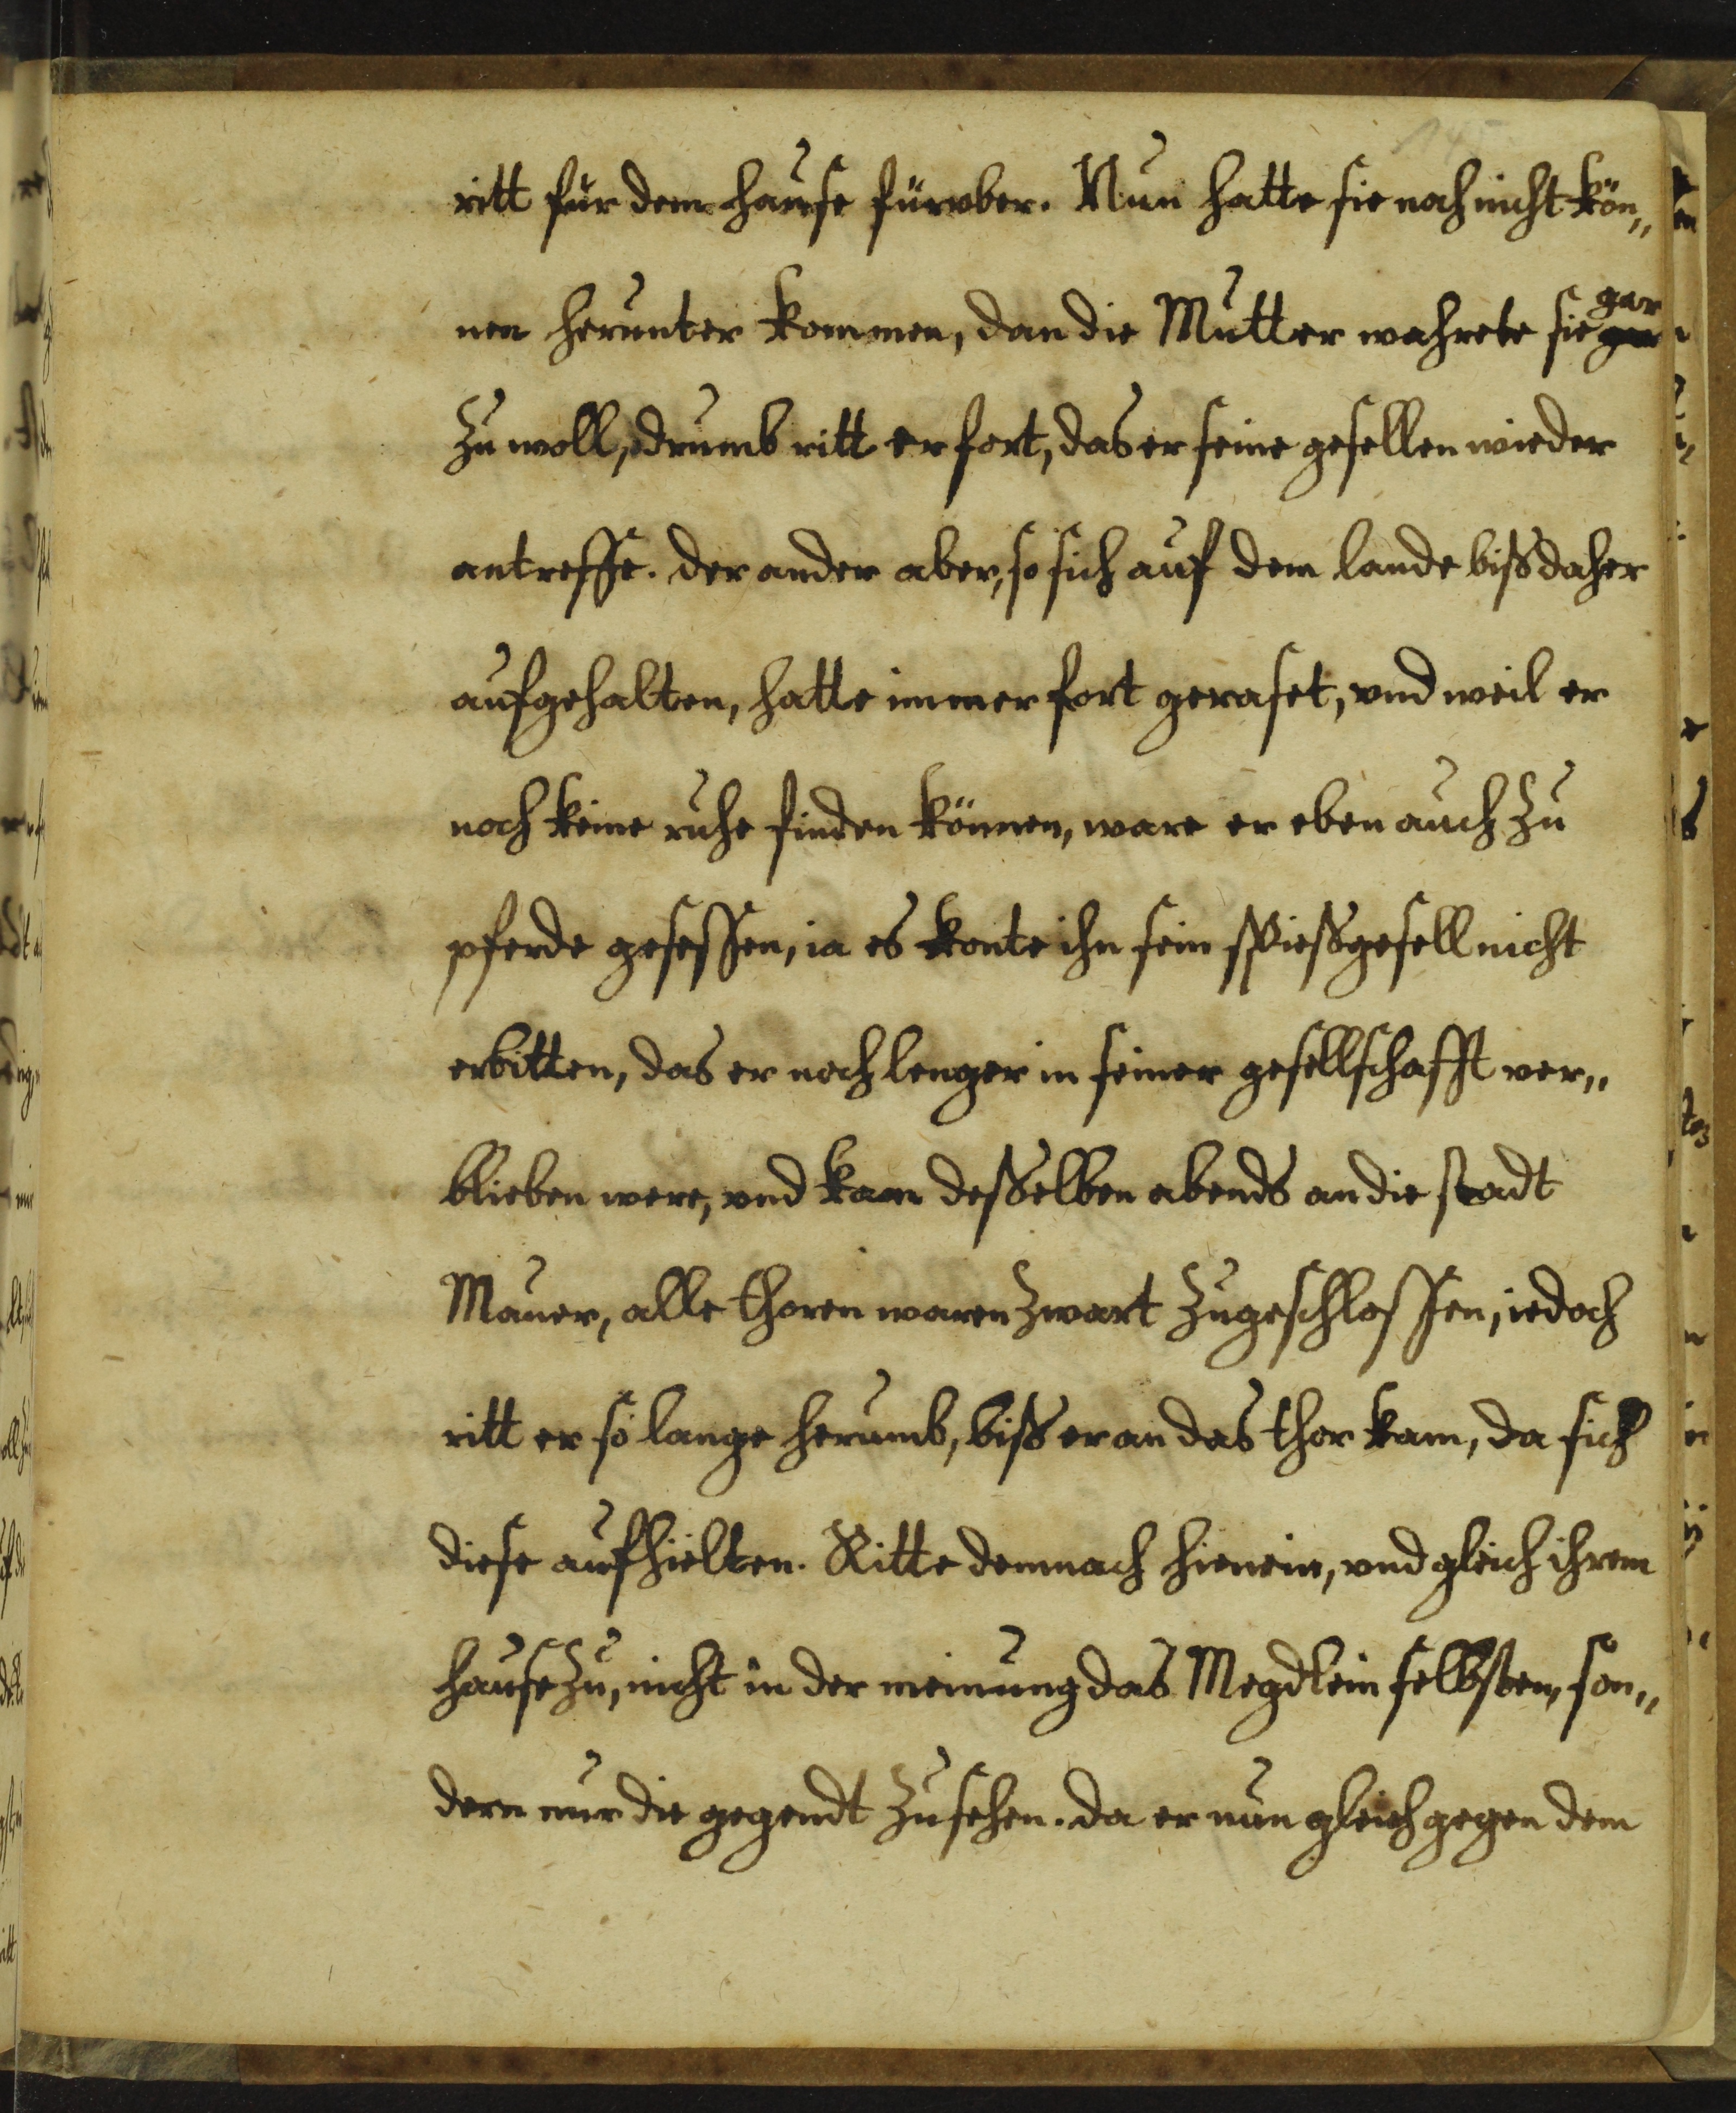 ritt für dem hause fürvber. Nun hatte sie noch nicht kön„
nen herunter kommen, dan die Mutter wahrete sie gar
zu woll, drumb ritt er fort, das er seine gesellen wieder
antreffe. der ander aber, so sich auf dem lande biß daher
aufgehalten, hatte immer fort geraset, vnd weil er
noch keine ruhe finden können, ware er eben auch zu
pferde gesessen, ia es konte ihn sein spießgesell nicht
erbitten, das er noch lenger in seiner gesellschafft ver„
blieben were, vnd kam desselben abends an die stadt
Mauer, alle thoren waren zwart zugeschlossen, iedoch
ritt er so lange herumb, biß er an das thor kam, da sich
diese aufhielten. Ritte demnach hienein, vnd gleich ihrem
hause zu, nicht in der meinung das Megdlein selbsten, son„
dern nur die gegendt zu sehen. da er nun gleich gegen dem